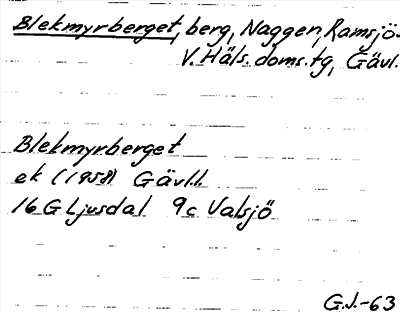 Blekmyrberget, berg, Naggen, Ramsjö.
V. Häls. doms.tg, Gävl.
Blekmyrberget
ek (1958) Gävl.l.
16 G Ljusdal 9c Valsjö
G.J.-63